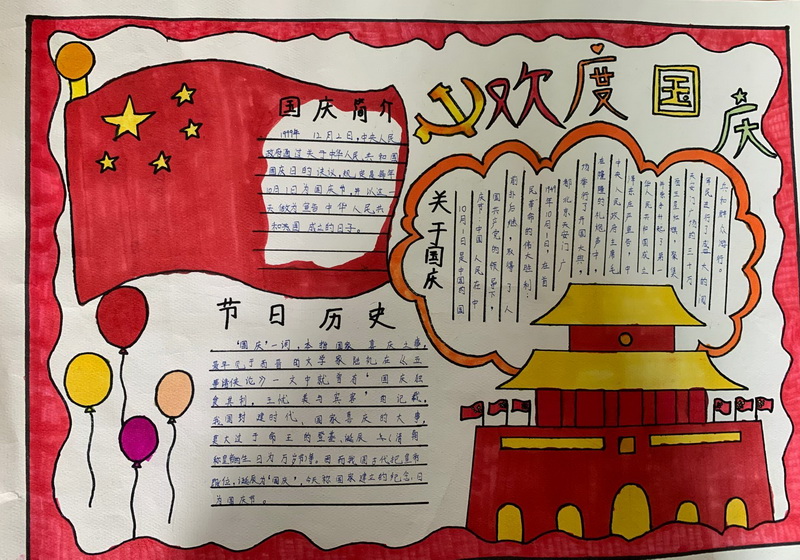 欢度国庆
国庆简介
1949年 12月2日，中央人民
政府通过关于中华人民共和国
国庆日的决议，规定每年
10月1日为国庆节，并以这一
天做为宣告中华人民共
和国成立的日子。
关于国庆
10月1日是中国的国
庆节，中国人民在中
国共产党的领导下，
前赴后继，取得了人
民革命的伟大胜利；
1949年10月1日，在首
都北京天安门广
场举行了开国大典，
在隆隆的礼炮声中，
中央人民政府主席毛
泽东庄严宣告，中
华人民共和国成立
并亲手升起了第一
面五星红旗，聚集
天安门广场的三十万
军民进行了盛大的阅
兵和群众游行。
节日历史
“国庆”一词，本指国家喜庆之事，
最早见于西晋的文学家陆机在《五
等诸侯论》一文中就曾有“国庆独
飨其利，主忧莫与其害”的记载，
我国封建时代、国家喜庆的大事，
莫大过于帝王的登基、诞辰
为国庆节。